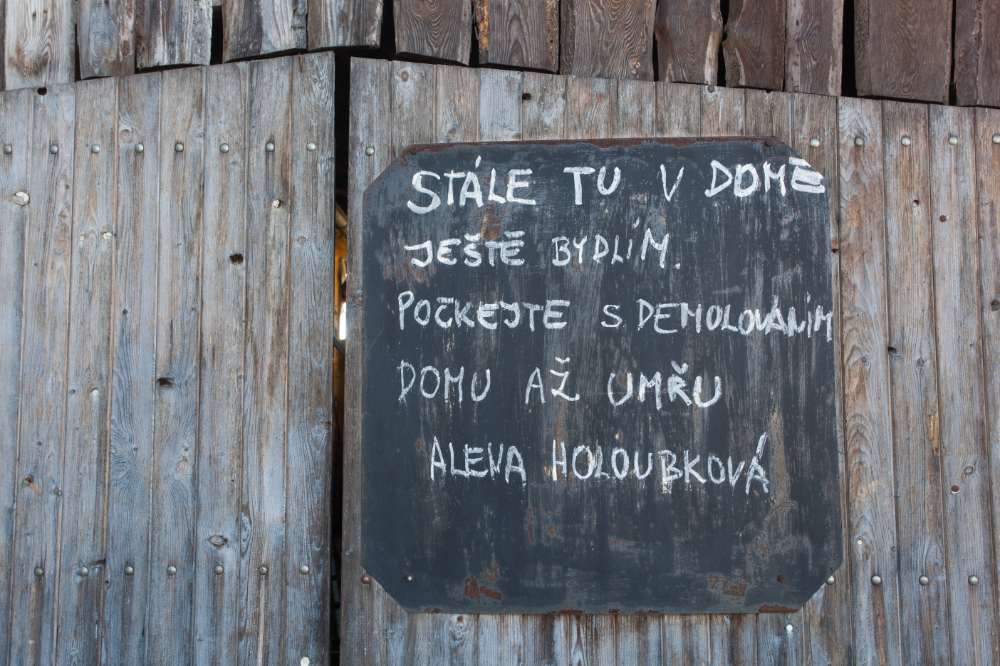 STÁLE TU V DOMĚ
JEŠTĚ BYDLÍM.
POČKEJTE S DEMOLOVÁNÍM
DOMU AŽ UMŘU
ALENA HOLOUBKOVÁ